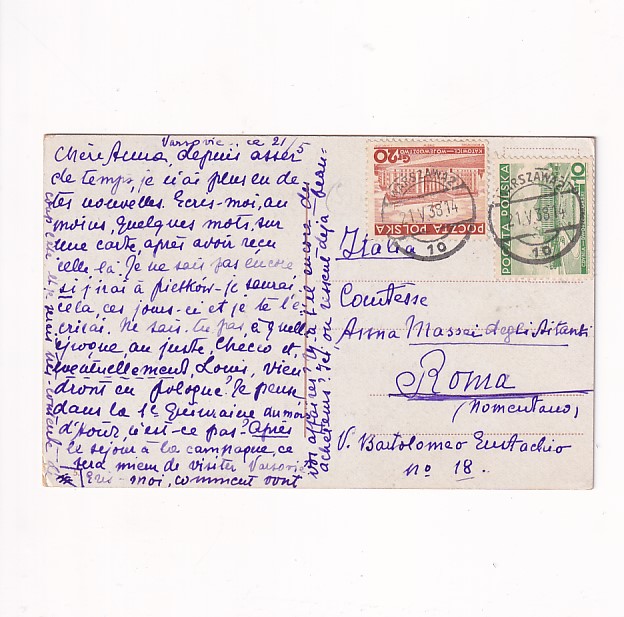 Varsovie, ce 21/5
Chère Anna, depuis assez
de temps, je n'ai plus eu de
tes nouvelles. Ecris-moi, au
moins, quelques mots, sur
une carte, après avoir reçu
celle là. Je ne sais pas encore
si j'irai à pieskow- je saurai
cela, ces jours-ci et je te l'é-
crirai. Ne sais-tu pas, à quelle
époque, au juste, Checco et
éventuellement, Louis, vien
dront en pologne? Je pense
dans la 1e Quinzaine du mois
d'Août, n'est-ce pas? Après
le séjour à la campagne, ce
sera mieux de visiter Varsovie
Ecris-moi, comment vont
vos affaires? Y a-t-il encore des
acheteurs? Ici, on vissent déjà beau-
Italia
Comtesse
Anna Massei degli Aitanti
Roma
(Nomentano)
V. Bartolomeo Eustachio
no 18.
20
KATOWICE-WOJEWÓDZTWO
POCZTA POLSKA
10
POCZTA POLSKA
WARSZAWA 2
21.V 38.14
10
WARSZAWA 2
21.V 38.14
10